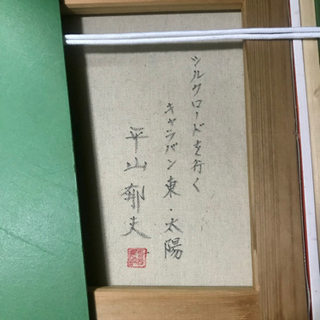 シルクロードを行く
キャラバン東・太陽
平山郁夫